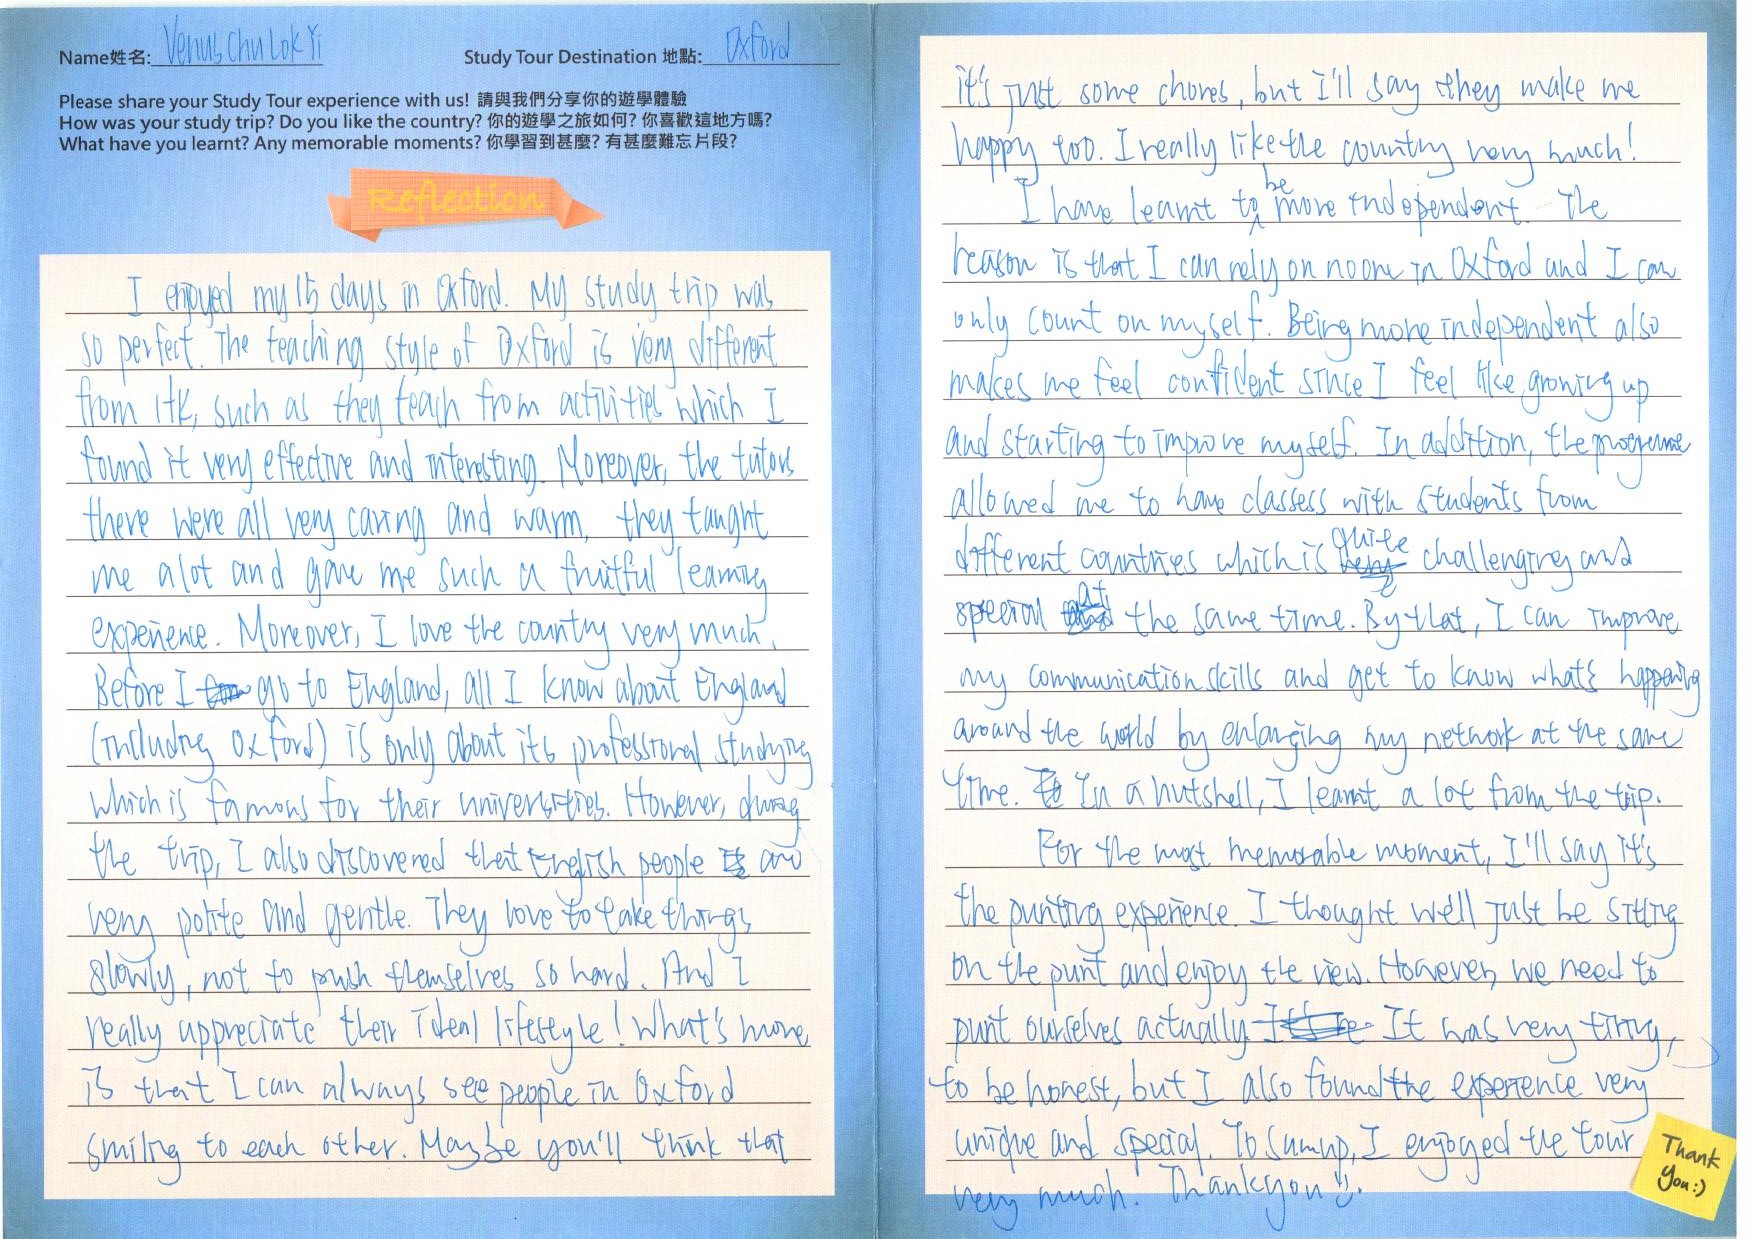 Name姓名: Venus Chu Lok Yi
Study Tour Destination 地點: Oxford
Please share your Study Tour experience with us! 請與我們分享你的遊學體驗
How was your study trip? Do you like the country? 你的遊學之旅如何? 你喜歡這地方嗎?
What have you learnt? Any memorable moments? 你學習到甚麼? 有甚麼難忘片段?
Reflection
I enjoyed my 15 days in Oxford. My study trip was
so perfect. The teaching style of Oxford is very different
from HK, such as they teach from activities which I
found it very effective and interesting. Moreover, the tutors
there were all very caring and warm, they taught
me a lot and gave me such a fruitful learning
experience. Moreover, I love the country very much.
Before I go to England, all I know about England
(including Oxford) is only about its professional studying
which is famous for their universities. However, during
the trip, I also discovered that English people are
very polite and gentle. They love to take things
slowly, not to push themselves so hard. And I
really appreciate their ideal lifestyle! What's more,
is that I can always see people in Oxford
smiling to each other. Maybe you'll think that
it's just some chores, but I'll say they make me
happy too. I really like the country very much!
I have learnt to be more independent. The
reason is that I can rely on no one in Oxford and I can
only count on myself. Being more independent also
makes me feel confident since I feel like growing up
and starting to improve myself. In addition, the programme
allowed me to have classess with students from
different countries which is quite challenging and
special at the same time. By that, I can improve
my communication skills and get to know what's happening
around the world by enlarging my network at the same
time. In a nutshell, I learnt a lot from the trip.
For the most memorable moment, I'll say it's
the punting experience. I thought we'll just be sitting
on the punt and enjoy the view. However, we need to
punt ourselves actually. It was very tiring,
to be honest, but I also found the experience very
unique and special. To sum up, I enjoyed the tour
very much. Thank you :).
Thank
You :)